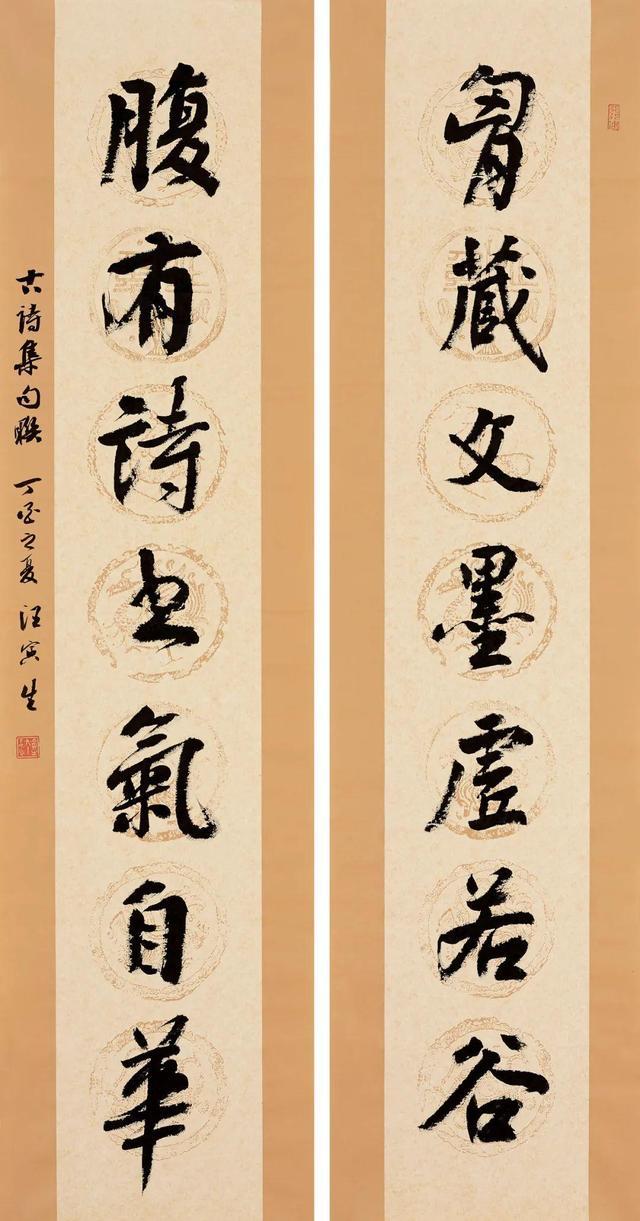 胷藏文墨虚若谷
腹有詩书氣自華
古詩集句联 丁酉之夏 汪寅生